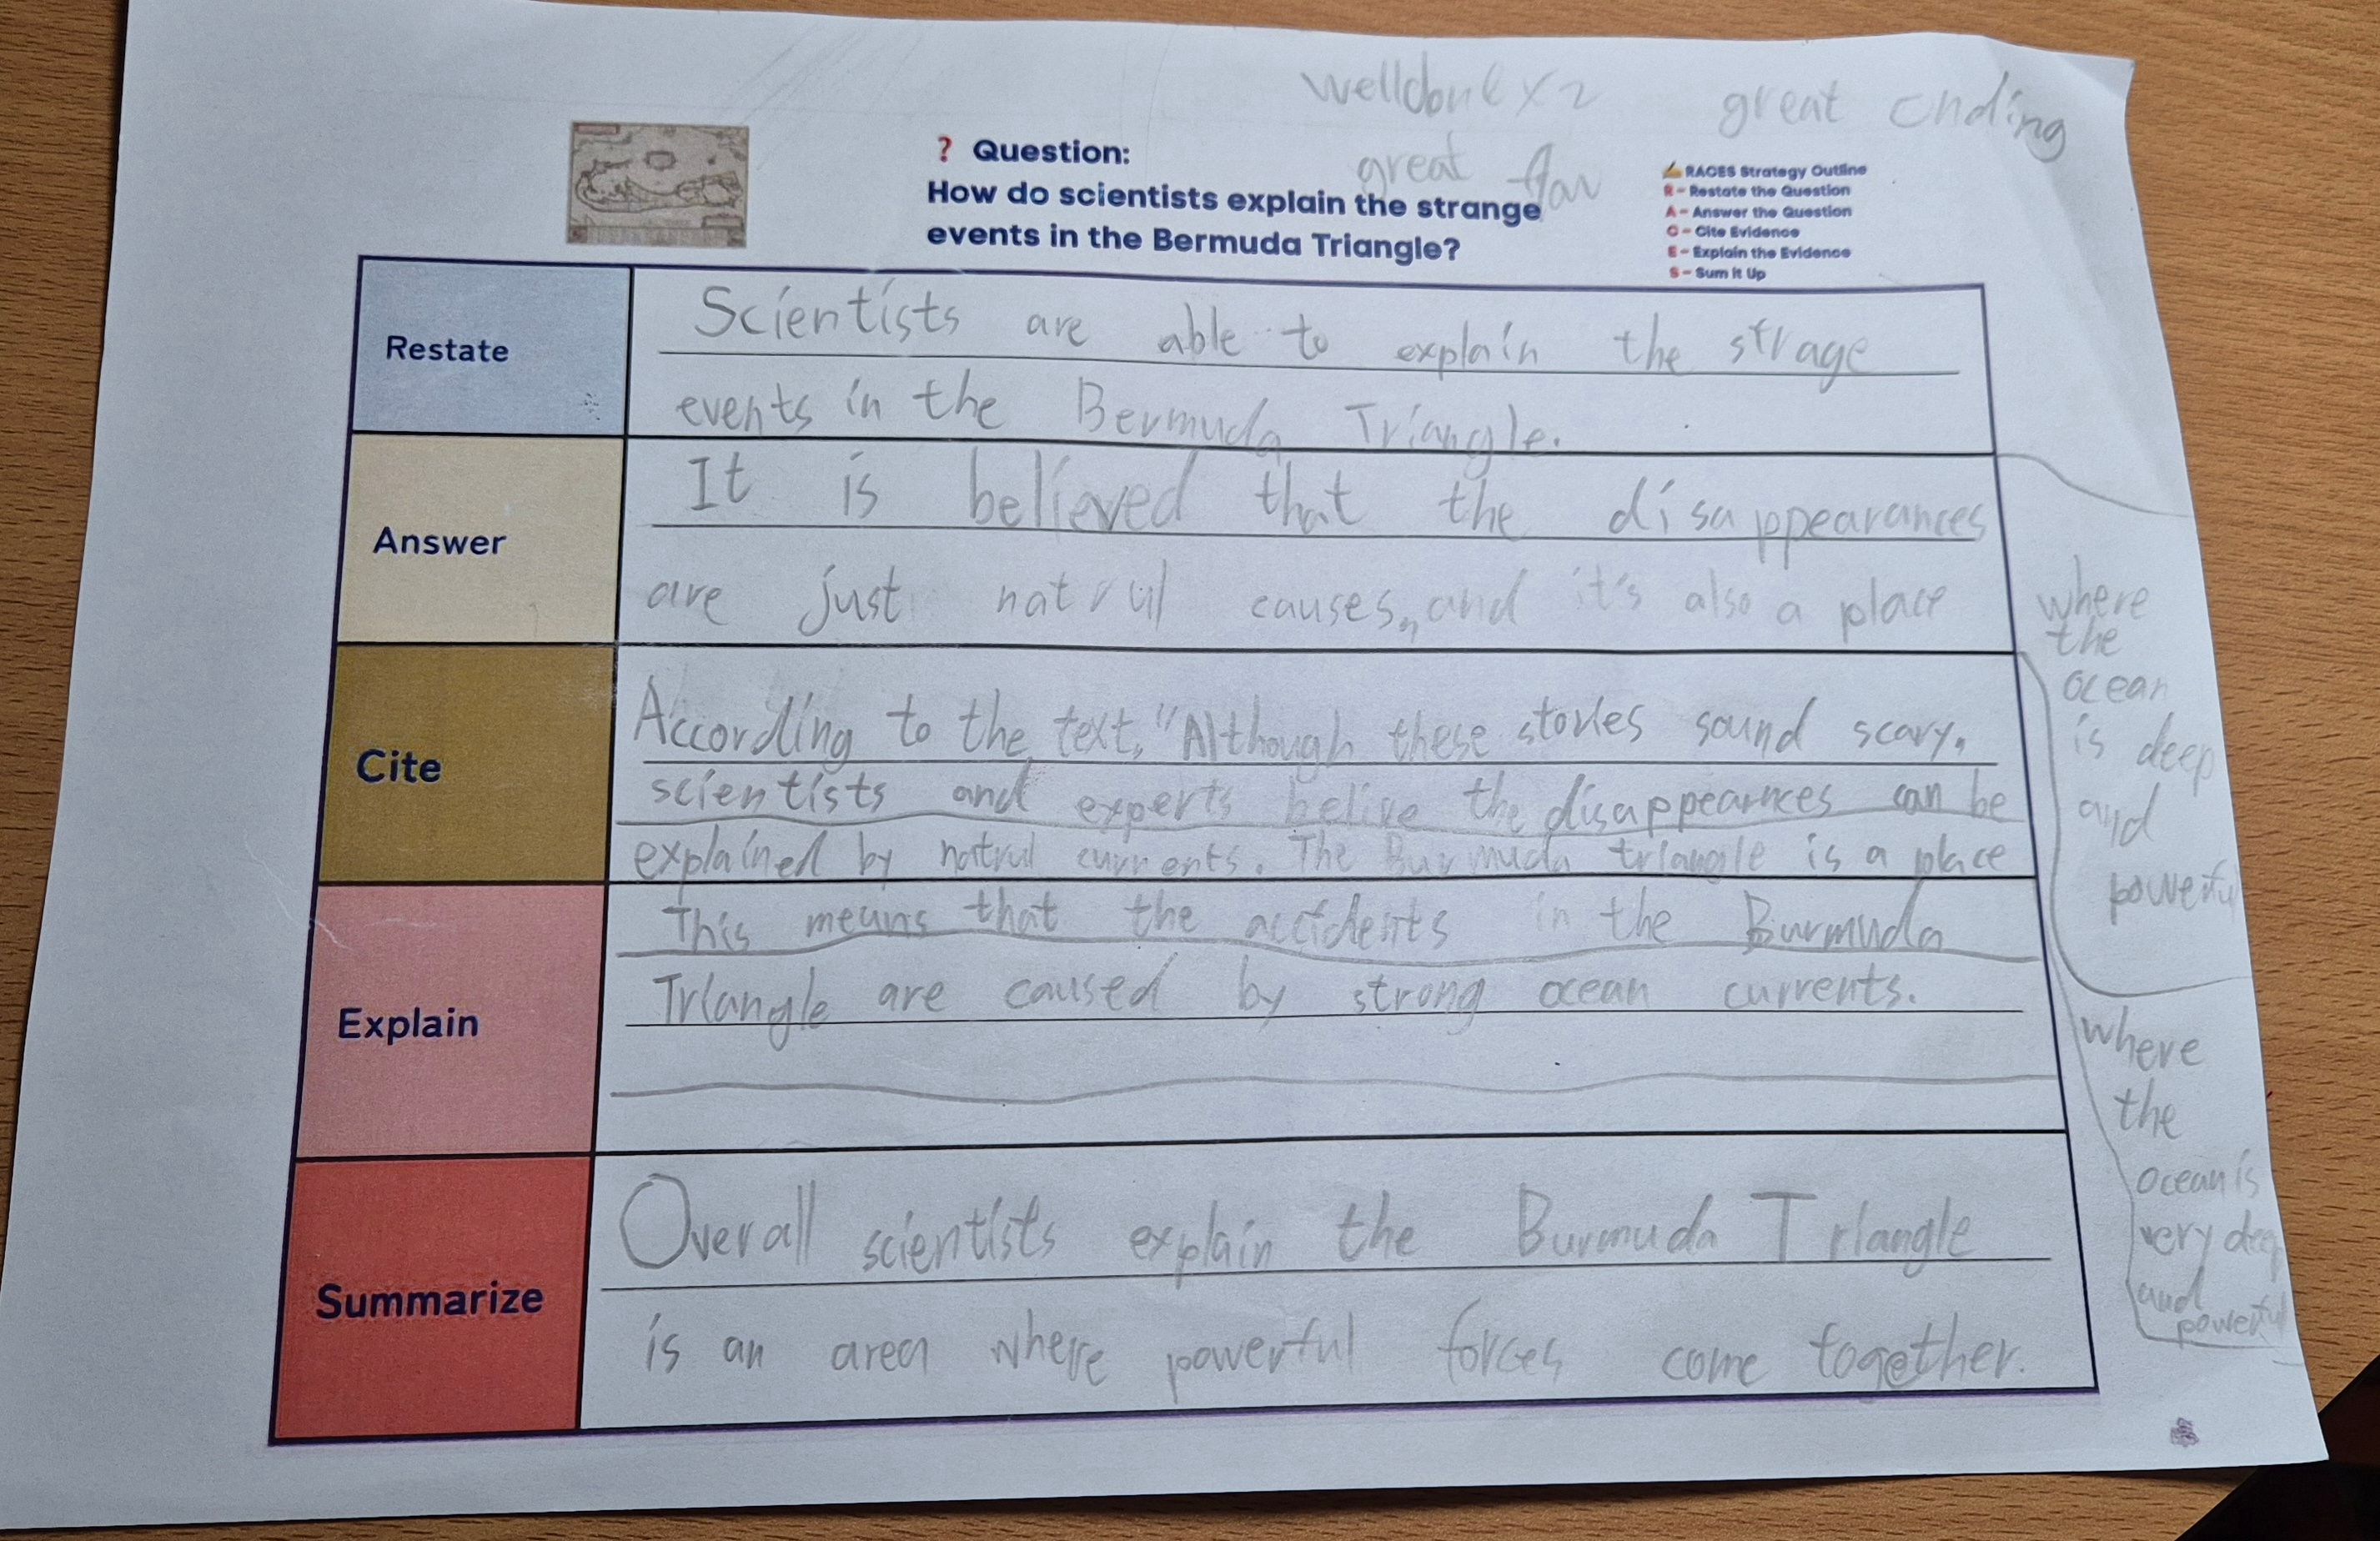 welldone x 2
great ending
great flow
? Question:
How do scientists explain the strange
events in the Bermuda Triangle?
RACES Strategy Outline
R - Restate the Question
A - Answer the Question
C - Cite Evidence
E - Explain the Evidence
S - Sum it Up
Restate
Scientists are able to explain the strage
events in the Bermuda Triangle.
Answer
It is believed that the disappearances
are just natrul causes, and it's also a place
where
the
ocean
is deep
and
powerful
Cite
According to the text, "Although these stories sound scary,
scientists and experts belive the disappearnces can be
explained by natrul currents. The Burmuda triangle is a place
where
the
ocean is
very deep
and
powerful
Explain
This means that the accidents in the Burmuda
Triangle are caused by strong ocean currents.
Summarize
Overall scientists explain the Burmuda Triangle
is an area where powerful forces come together.